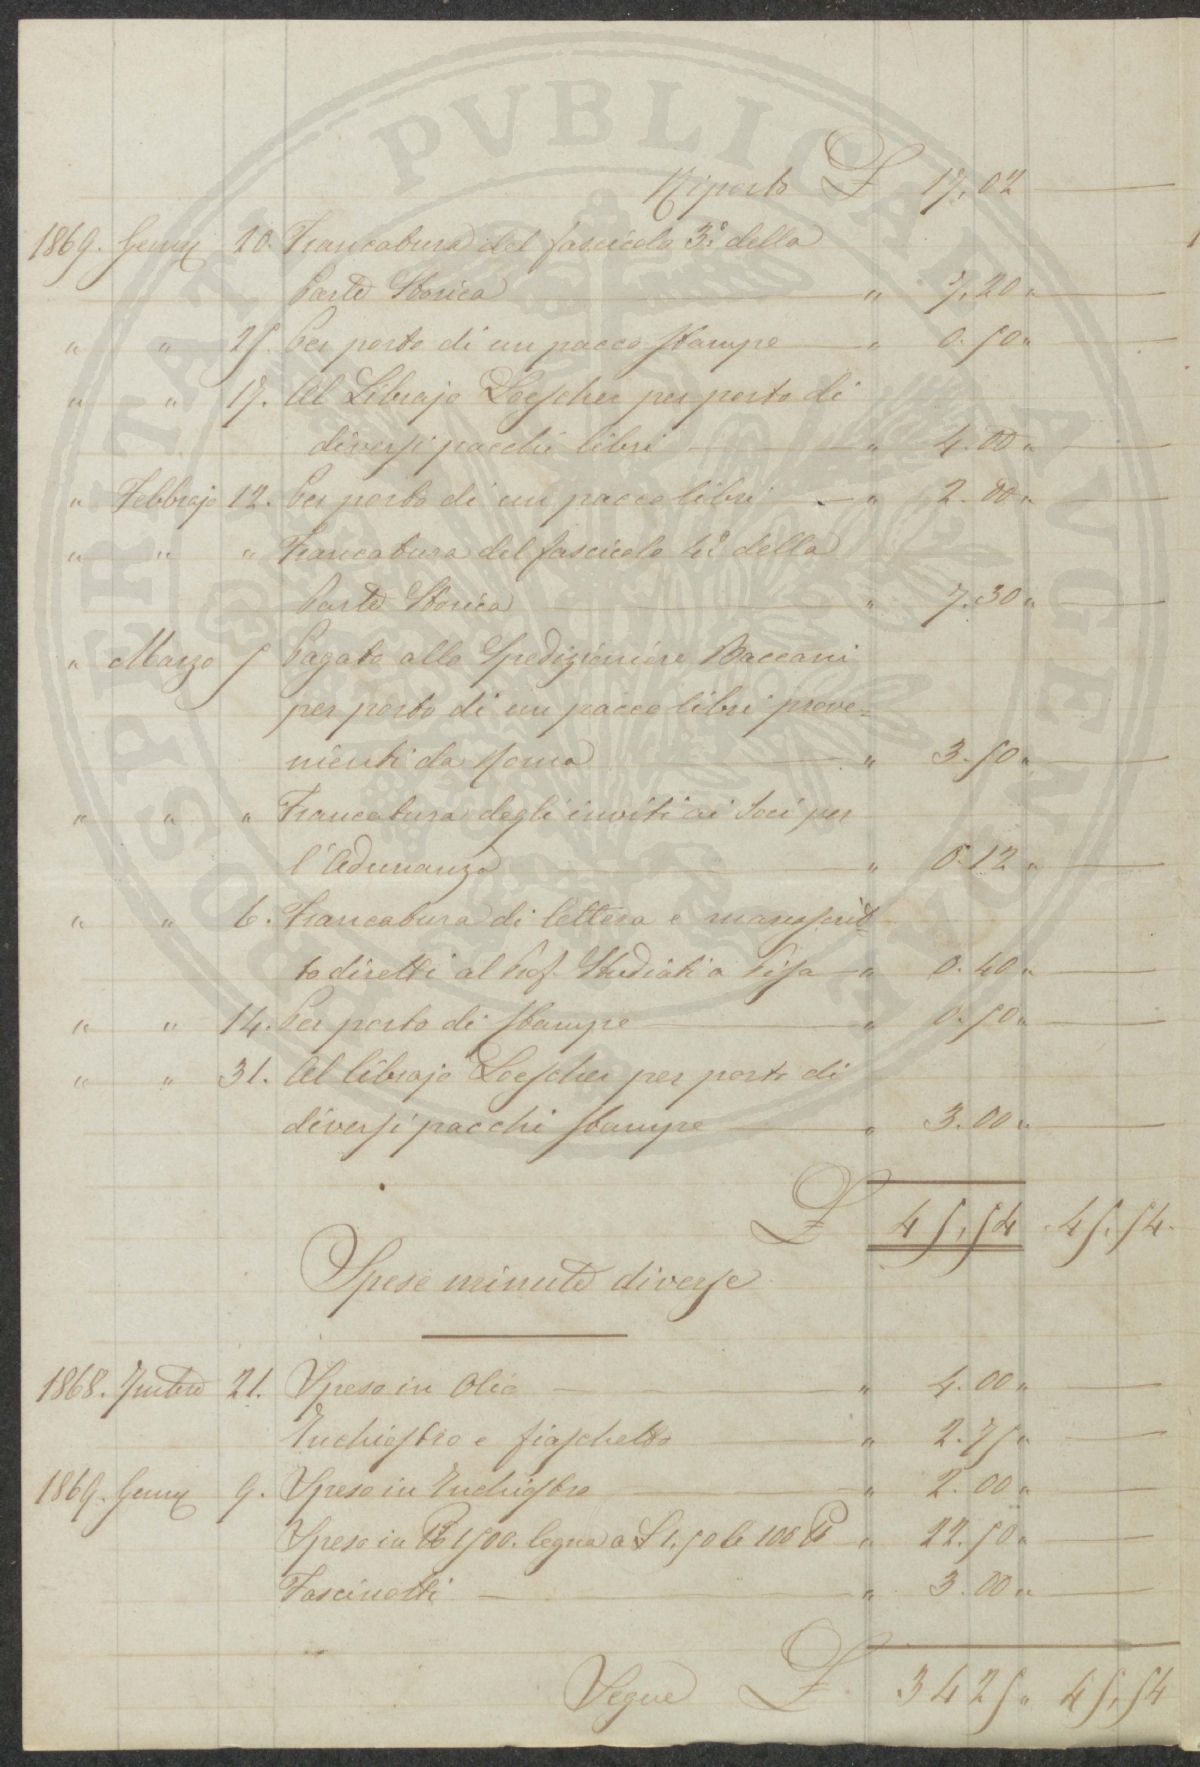 Riporto £ 17,02
1869. Genn 20. Francatura del fascicolo 3.° della
Parte Storica " 7,20 "
" " 25. Per porto di un pacco stampe " 0.50 "
" " 17. Al Librajo Loescher per porto di
diversi pacchi libri " 4.00 "
" Febbrajo 12. Per porto di un pacco libri " 2.00 "
" " " Francatura del fascicolo 4.° della
Parte Storica " 7.30 "
" Marzo 5 Pagato allo Spedizioniere Baccani
per porto di un pacco libri prove=
nienti da Roma " 3.50 "
" " " Francatura degli inviti ai Soci per
l'Adunanza " 0.12 "
" " 6. Francatura di lettera e manoscrit=
to diretti al Prof. Studiati a Pisa " 0.40 "
" " 14. Per porto di stampe " 0.50 "
" " 31. Al librajo Loescher per porto di
diversi pacchi stampe " 3.00 "
£ 45,54 45.54
Spese minute diverse
1868. 21. Spesa in Olio " 4.00 "
Inchiostro e fiaschetto " 2.75 "
1869. Genn 9. Spesa in Inchiostro " 2.00 "
Spesa in 1500. legna a £ 1,50 le 100 " 22.50 "
Fascinotti " 3.00 "
Segue £ 34 25 " 45,54
PROSPERITATI PVBLICAE AVGENDAE